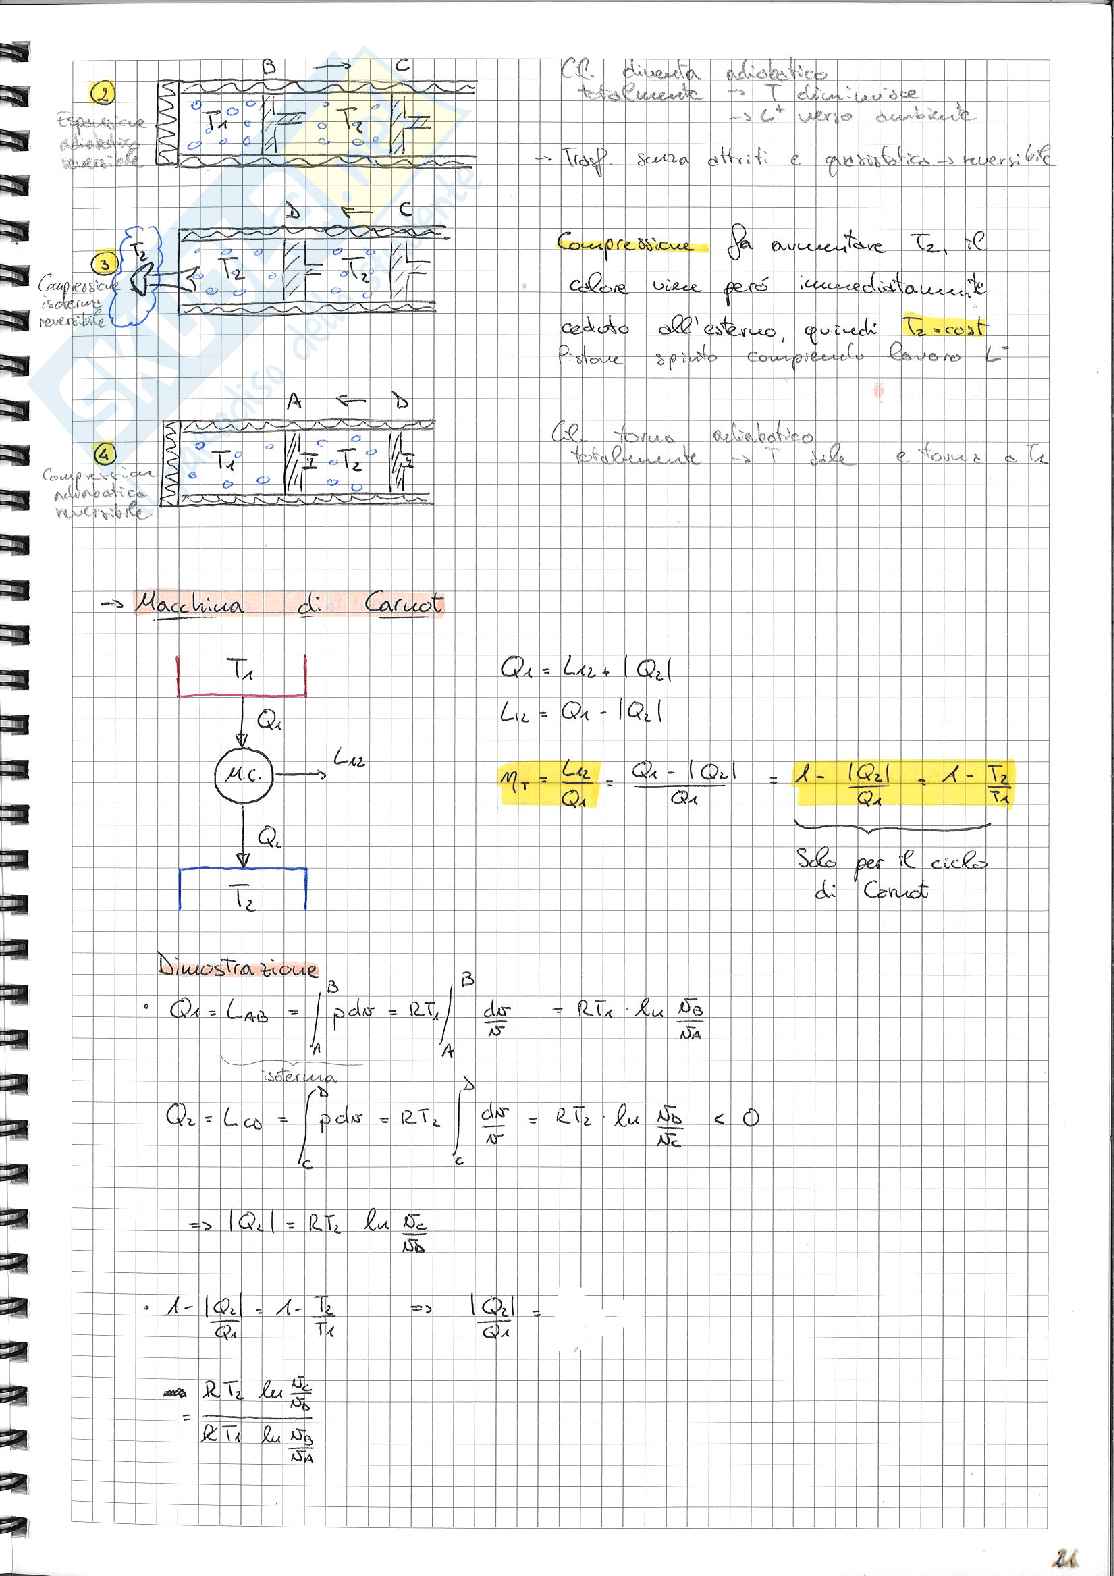 B → C
②
Espansione
adiabatica
reversibile
T1
T2
Cil. diventa adiabatico
totalmente → T diminuisce
→ L+ verso ambiente
→ Trasf. senza attriti e quasistatica → reversibile
D ← C
③
Compressione
isoterma
reversibile
T2
T2
T2
Compressione fa aumentare T2, il
calore viene però immediatamente
ceduto all'esterno, quindi T2 = cost
Pistone spinto compiendo lavoro L-
A ← D
④
Compressione
adiabatica
reversibile
T1
T2
Cil. torna adiabatico
totalmente → T sale e torna a T1
→ Macchina di Carnot
T1
Q1
M.C.
L12
Q2
T2
Q1 = L12 + |Q2|
L12 = Q1 - |Q2|
ηT = L12/Q1 = (Q1 - |Q2|)/Q1 = 1 - |Q2|/Q1 = 1 - T2/T1
Solo per il ciclo
di Carnot
Dimostrazione
• Q1 = LAB = ∫_A^B pdv = RT1 ∫_A^B dv/v = RT1 · ln vB/vA
isoterma
Q2 = LCD = ∫_C^D pdv = RT2 ∫_C^D dv/v = RT2 · ln vD/vC < 0
=> |Q2| = RT2 ln vC/vD
• 1 - |Q2|/Q1 = 1 - T2/T1 => |Q2|/Q1 =
= (RT2 ln vC/vD)/(RT1 ln vB/vA)
21